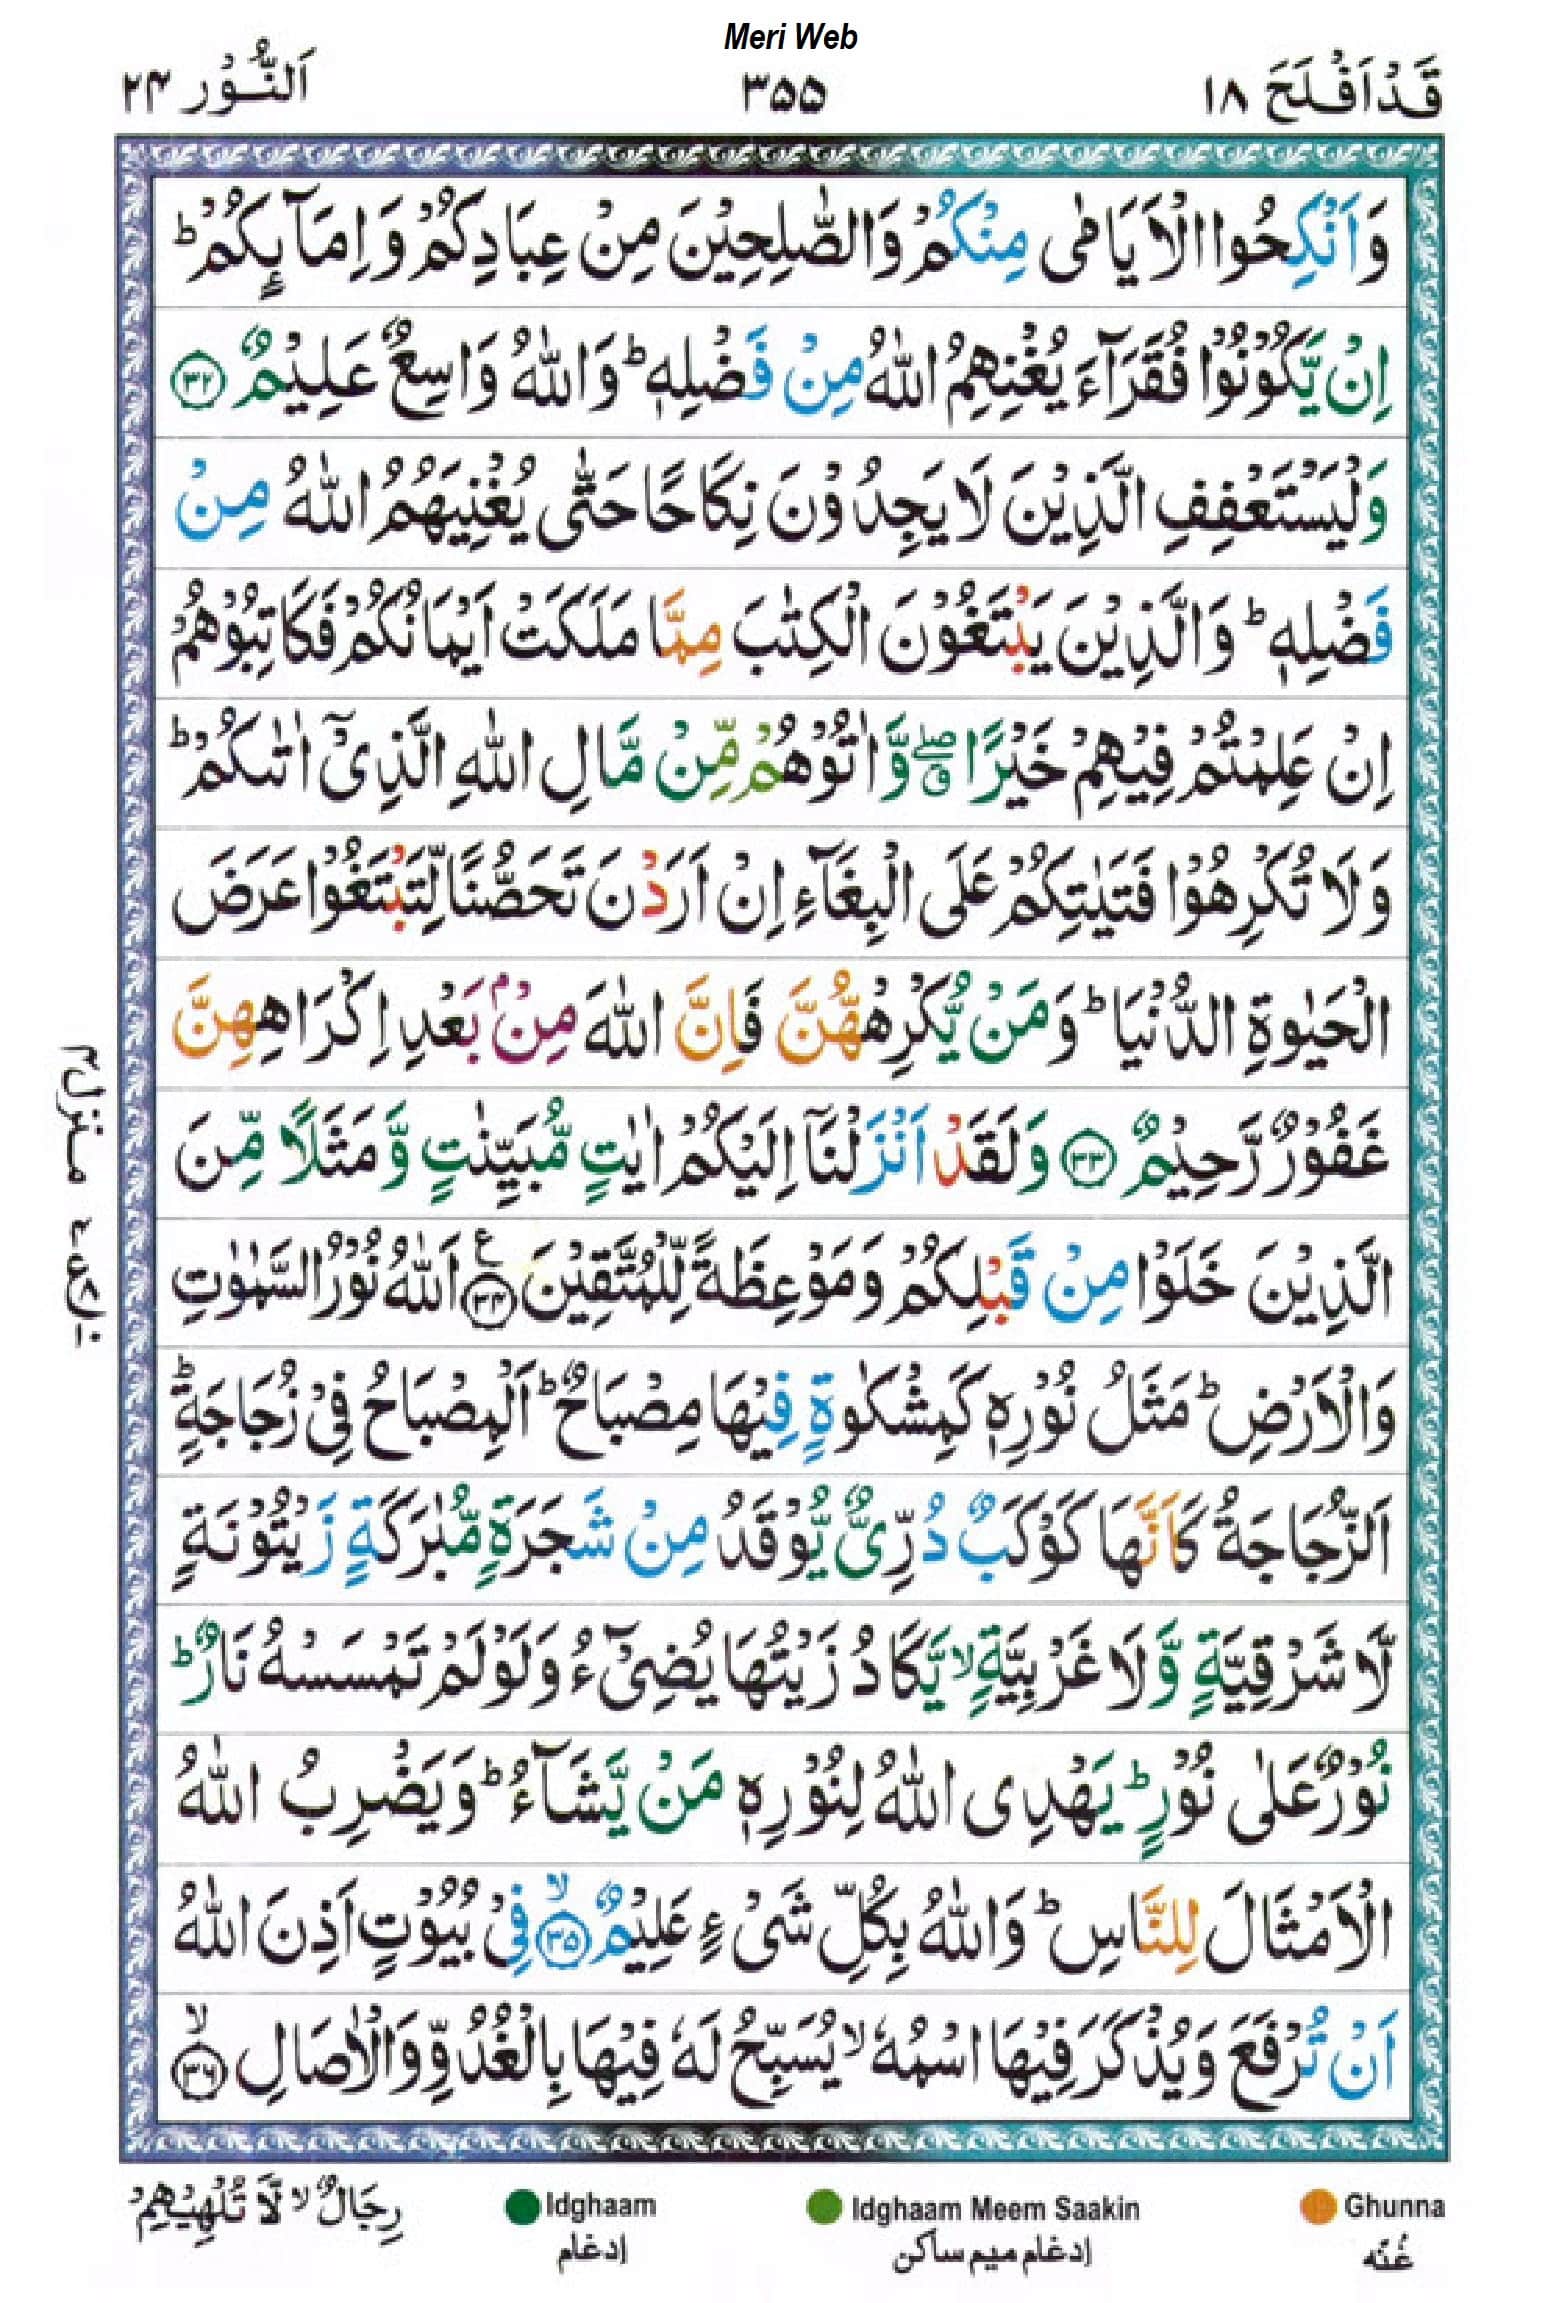 Meri Web
قَدْ اَفْلَحَ ۱۸
۳۵۵
اَلنُّوْر ۲۴
وَاَنْكِحُوا الْاَيَامٰى مِنْكُمْ وَالصّٰلِحِيْنَ مِنْ عِبَادِكُمْ وَاِمَآئِكُمْ ؕ
اِنْ يَّكُوْنُوْا فُقَرَآءَ يُغْنِهِمُ اللّٰهُ مِنْ فَضْلِهٖ ؕ وَاللّٰهُ وَاسِعٌ عَلِيْمٌ ۳۲
وَلْيَسْتَعْفِفِ الَّذِيْنَ لَا يَجِدُوْنَ نِكَاحًا حَتّٰى يُغْنِيَهُمُ اللّٰهُ مِنْ
فَضْلِهٖ ؕ وَالَّذِيْنَ يَبْتَغُوْنَ الْكِتٰبَ مِمَّا مَلَكَتْ اَيْمَانُكُمْ فَكَاتِبُوْهُمْ
اِنْ عَلِمْتُمْ فِيْهِمْ خَيْرًا ۖ وَّاٰتُوْهُمْ مِّنْ مَّالِ اللّٰهِ الَّذِىْۤ اٰتٰىكُمْ ؕ
وَلَا تُكْرِهُوْا فَتَيٰتِكُمْ عَلَى الْبِغَآءِ اِنْ اَرَدْنَ تَحَصُّنًا لِّتَبْتَغُوْا عَرَضَ
الْحَيٰوةِ الدُّنْيَا ؕ وَمَنْ يُّكْرِهْهُّنَّ فَاِنَّ اللّٰهَ مِنْۢ بَعْدِ اِكْرَاهِهِنَّ
غَفُوْرٌ رَّحِيْمٌ ۳۳ وَلَقَدْ اَنْزَلْنَاۤ اِلَيْكُمْ اٰيٰتٍ مُّبَيِّنٰتٍ وَّمَثَلًا مِّنَ
الَّذِيْنَ خَلَوْا مِنْ قَبْلِكُمْ وَمَوْعِظَةً لِّلْمُتَّقِيْنَ ۳۴ ع اَللّٰهُ نُوْرُ السَّمٰوٰتِ
وَالْاَرْضِ ؕ مَثَلُ نُوْرِهٖ كَمِشْكٰوةٍ فِيْهَا مِصْبَاحٌ ؕ اَلْمِصْبَاحُ فِىْ زُجَاجَةٍ ؕ
اَلزُّجَاجَةُ كَاَنَّهَا كَوْكَبٌ دُرِّىٌّ يُّوْقَدُ مِنْ شَجَرَةٍ مُّبٰرَكَةٍ زَيْتُوْنَةٍ
لَّا شَرْقِيَّةٍ وَّلَا غَرْبِيَّةٍ ۙ يَّكَادُ زَيْتُهَا يُضِىْٓءُ وَلَوْ لَمْ تَمْسَسْهُ نَارٌ ؕ
نُوْرٌ عَلٰى نُوْرٍ ؕ يَهْدِى اللّٰهُ لِنُوْرِهٖ مَنْ يَّشَآءُ ؕ وَيَضْرِبُ اللّٰهُ
الْاَمْثَالَ لِلنَّاسِ ؕ وَاللّٰهُ بِكُلِّ شَىْءٍ عَلِيْمٌ ۙ ۳۵ فِىْ بُيُوْتٍ اَذِنَ اللّٰهُ
اَنْ تُرْفَعَ وَيُذْكَرَ فِيْهَا اسْمُهٗ ۙ يُسَبِّحُ لَهٗ فِيْهَا بِالْغُدُوِّ وَالْاٰصَالِ ۙ ۳۶
منزل ۴
رِجَالٌ ۙ لَّا تُلْهِيْهِمْ
Idghaam
Idghaam Meem Saakin
Ghunna
إدغام
إدغام ميم ساكن
غُنّه